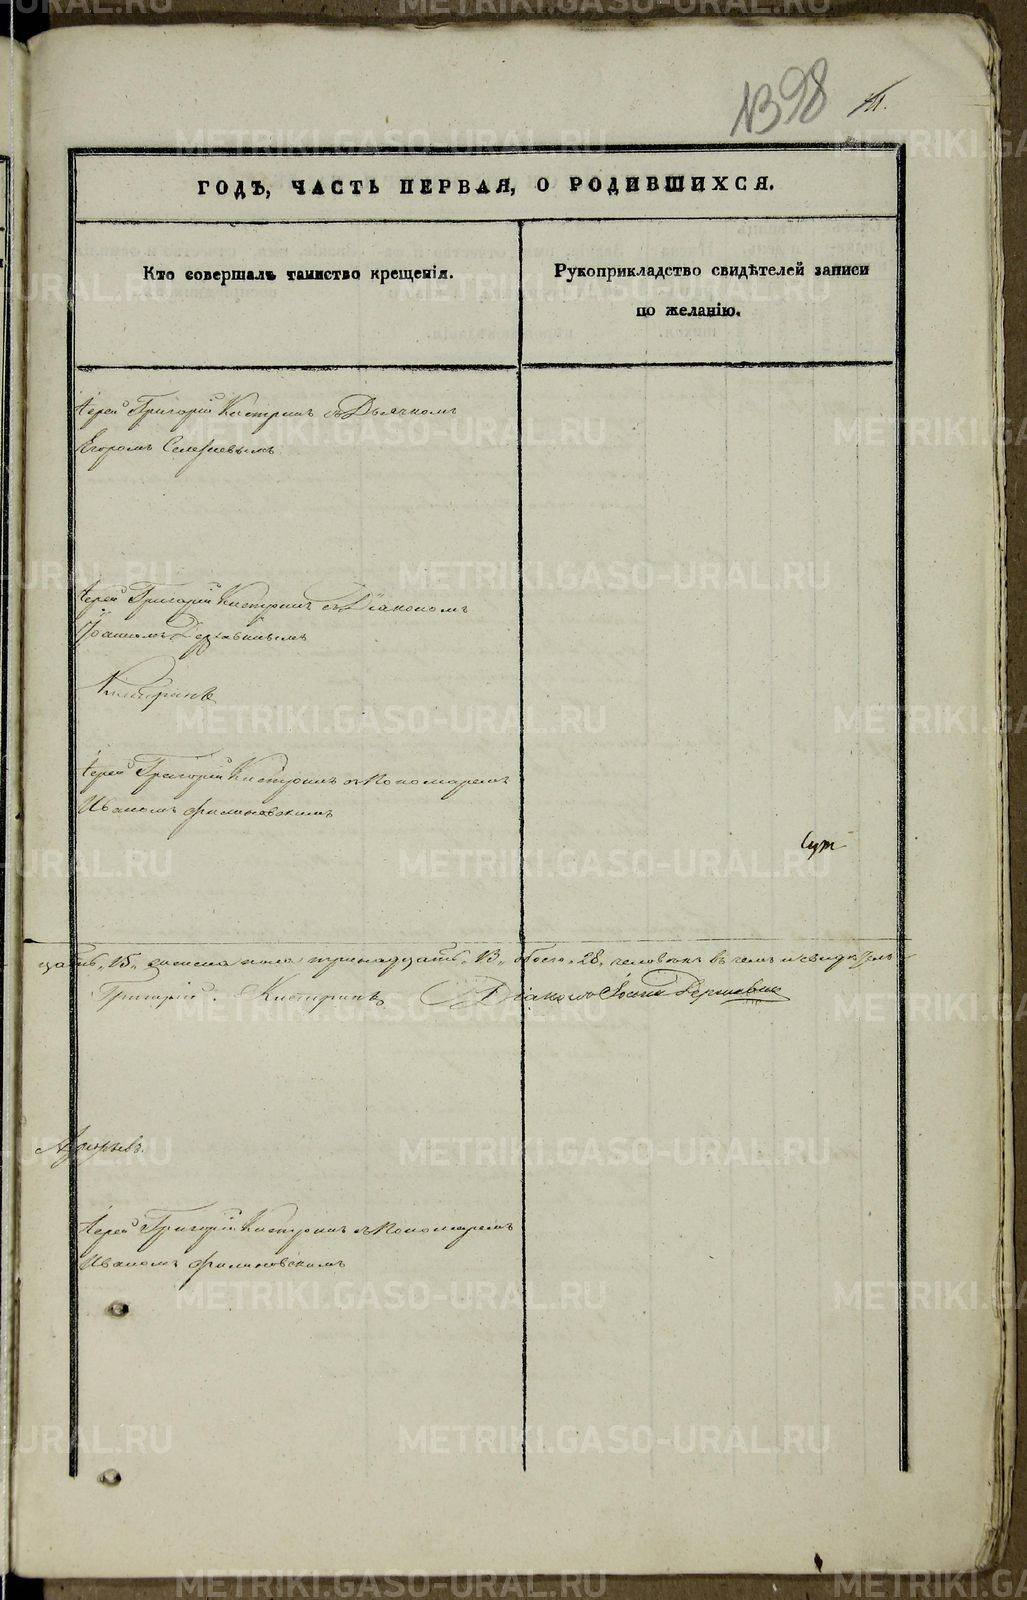 №398
ГОДЪ, ЧАСТЬ ПЕРВАЯ, О РОДИВШИХСЯ.
Кто совершалъ таинство крещенія.
Рукоприкладство свидѣтелей записи
по желанію.
Іерей Григорій Кистринъ съ Дьячкомъ
Егоромъ Селезневымъ
Іерей Григорій Кистринъ съ Діакономъ
Іоанномъ Державинымъ
Кистринъ
Іерей Григорій Кистринъ съ Пономаремъ
Иваномъ Филиновскимъ
цать, 15, женска пола тринадцать, 13, обоего, 28, человѣкъ въ чемъ и свидѣтель
Григорій Кистринъ Діаконъ Іоаннъ Державинъ
Іерей Григорій Кистринъ съ Пономаремъ
Иваномъ Филиновскимъ
METRIKI.GASO-URAL.RU